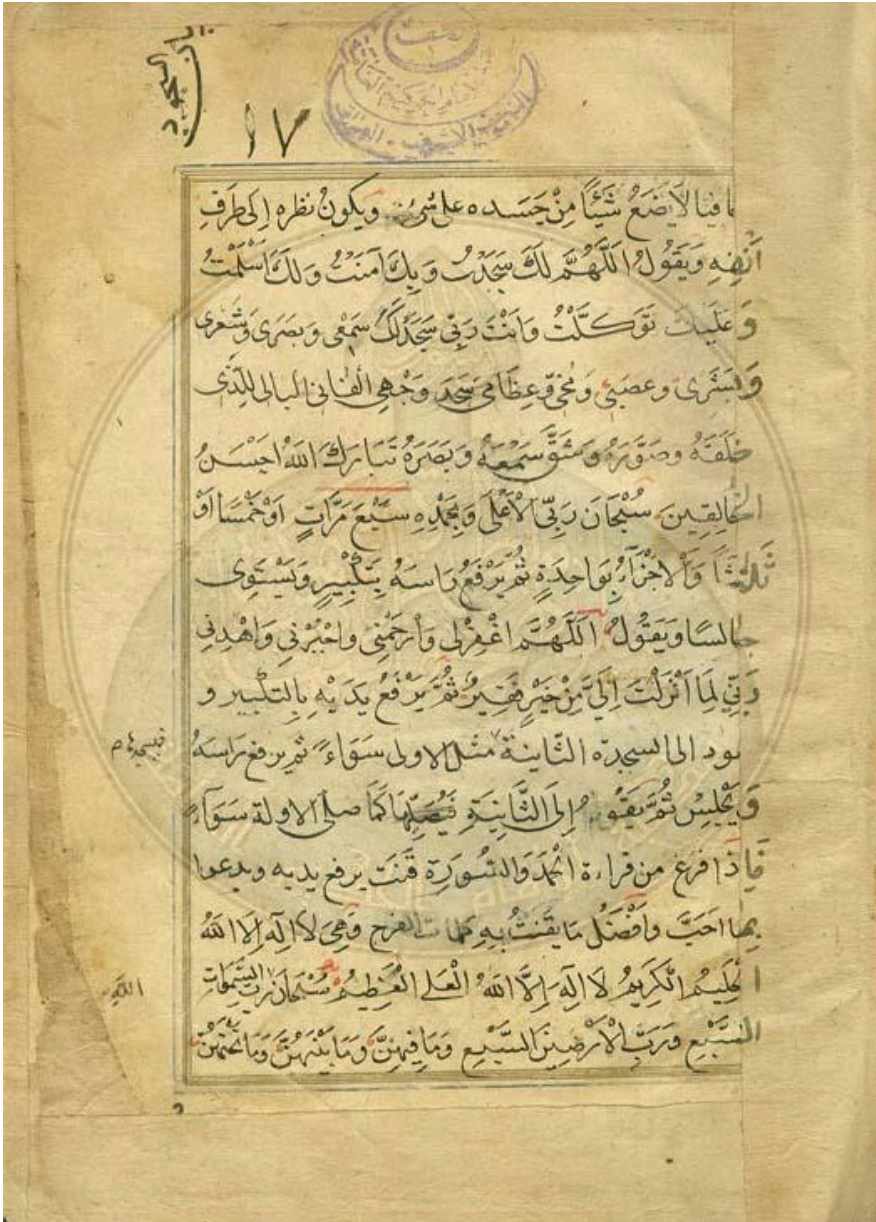 بيان السجود
١٧
لا يضَعُ شَيْئاً مِنْ جَسَده على شئ منه ويكونُ نظره إلى طَرَفِ
اَنْفِهِ وَيَقُولُ اَللَّهُمَّ لَكَ سَجَدْتُ وَبِكَ آمَنْتُ وَلَكَ اَسْلَمْتُ
وَعَلَيْكَ تَوَكَّلْتُ وَاَنْتَ رَبّى سَجَدَ لَكَ سَمْعى وَبَصَرى وَشَعْرى
وَبَشَرى وَعصَبى وَمُخّى وَعِظَامى سَجَدَ وَجْهِى الفانى البالى لِلَّذى
خَلَقَهُ وصَوَّرَهُ وَشَقَّ سَمْعَهُ وَبَصَرَهُ تَبَارَكَ اللهُ احْسَنُ
الخَالِقِينَ سُبْحَانَ رَبّىَ الاَعْلَى وَبِحَمْدِهِ سَبْعَ مَرَّاتٍ اَوْ خَمْسًا اَوْ
ثَلاثًا وَالاجْزَآءُ بِوَاحِدَةٍ ثُمَّ يَرْفَعُ رَاسَهُ بِتَكْبِيرٍ وَيَسْتَوى
جالسًا وَيَقُولُ اَللَّهُمَّ اغْفِرْلى وَاْرحَمْنِى واجْبُرْنى وَاهْدِنى
رَبِّي لِمَا اَنْزَلْتَ اِلَيَّ مِنْ خَيْرٍ فَقِيرٌ ثُمَّ يَرْفَعُ يَدَيْهِ بِالتكْبير و
يعود الى السجدة الثَّانية مثل الاولى سَوَاءً ثم يرفع رَاسَهُ
فيسجدها م
وَيَجْلِسُ ثُمَّ يَقُومُ إِلَى الثَّانِيَةِ فَيُصَلّيهَا كَمَا صلى الاولة سَوَآءً
فَاِذا فرغ من قراءة الحَمْدَ وَالسُّورَةِ قَنَتَ يرفع يديه ويدعوا
بِما اَحَبَّ وَاَفْضَلُ مَا يَقْنُتُ بِهِ كلمات الفرج وَهِىَ لاَ اِلَهَ اِلاَّ اللهُ
الحَلِيمُ الْكَرِيمُ لاَ اِلَهَ اِلاَّ اللهُ الْعَلى الْعَظِيمُ سُبْحَانَ رَبِّ السَّموَات
اللَّهِ
السَّبْعِ وَرَبِّ الْاَرَضِينَ السَّبْعِ وَمَا فِيهِنَّ وَمَا بَيْنَهُنَّ وَمَا تَحْتَهُنَّ